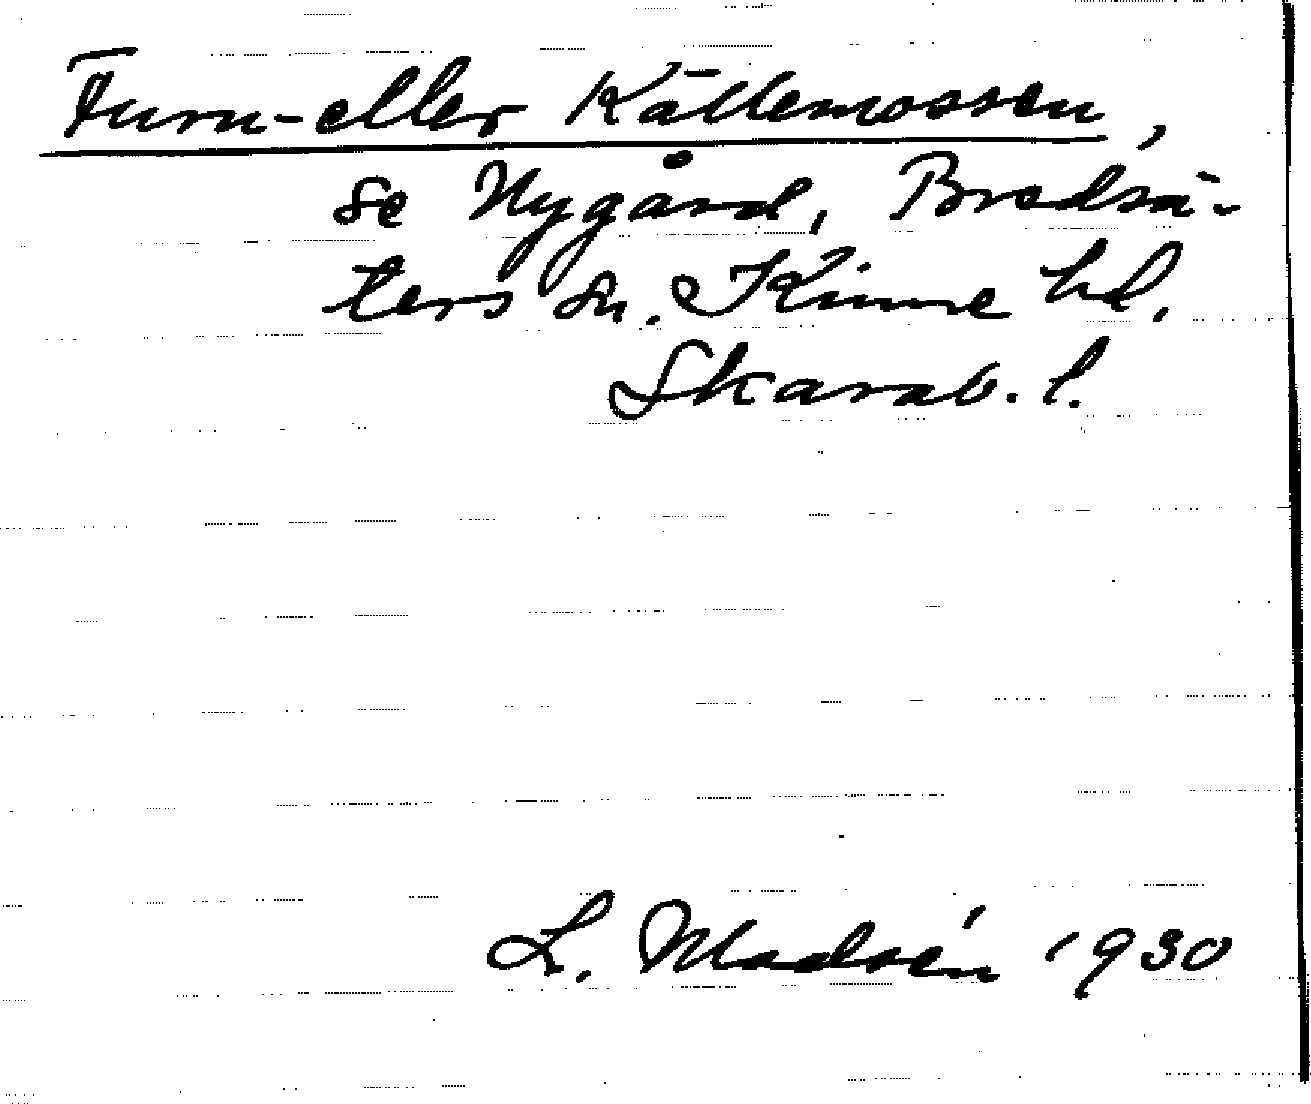 Furn- eller Källemossen,
se Nygård, Bredsä-
ters sn. Kinne hd.
Skarab. l.
L. Madsén 1930